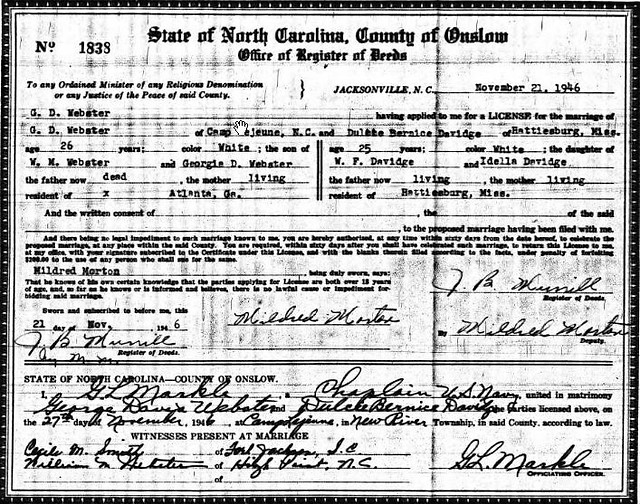 State of North Carolina, County of Onslow
Office of Register of Deeds
No 1838
To any Ordained Minister of any Religious Denomination
or any Justice of the Peace of said County. } JACKSONVILLE, N.C. November 21, 1946
G. D. Webster having applied to me for a LICENSE for the marriage of
G. D. Webster of Camp Lejeune, N.C. and Dulcie Bernice Davidge of Hattiesburg, Miss.
age 26 years; color White ; the son of age 25 years; color White ; the daughter of
W. M. Webster and Georgie D. Webster W. F. Davidge and Idella Davidge
the father now dead , the mother living the father now living , the mother living
resident of x Atlanta, Ga. resident of Hattiesburg, Miss.
And the written consent of , the of the said
, to the proposed marriage having been filed with me.
And there being no legal impediment to such marriage known to me, you are hereby authorised, at any time within sixty days from the date hereof, to celebrate the
proposed marriage, at any place within the said County. You are required, within sixty days after you shall have celebrated such marriage, to return this License to me,
at my office, with your signature subscribed to the Certificate under this License, and with the blanks therein filled according to the facts, under penalty of forfeiting
$200.00 to the use of any person who shall sue for the same.
Mildred Morton being duly sworn, says:
That he knows of his own certain knowledge that the parties applying for License are both over 18 years
of age, and, so far as he knows or is informed and believes, there is no lawful cause or impediment forbidding said marriage.
J. B. Murrill
Register of Deeds.
Sworn and subscribed to before me, this
21 day of Nov. 1946
Mildred Morton
J. B. Murrill
Register of Deeds.
By Mildred Morton
Deputy.
STATE OF NORTH CAROLINA—COUNTY OF ONSLOW.
I, G L Markle a Chaplain U.S. Navy, united in matrimony
George Davis Webster and Dulcie Bernice Davidge the parties licensed above, on
the 27th day of November, 1946 at Camp Lejeune, in New River Township, in said County, according to law.
WITNESSES PRESENT AT MARRIAGE
Cecile M. Smith of Fort Jackson, S.C.
William M Webster of High Point N.C.
of
G L Markle
OFFICIATING OFFICER.